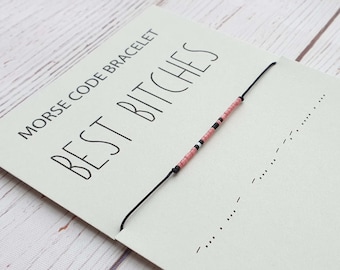 MORSE CODE BRACELET
BEST BITCHES